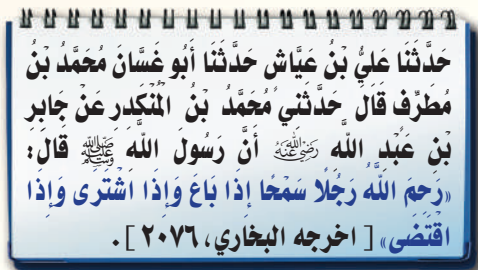 حَدَّثَنَا عَلِيُّ بْنُ عَيَّاشٍ حَدَّثَنَا أَبُو غَسَّانَ مُحَمَّدُ بْنُ
مُطَرِّفٍ قَالَ حَدَّثَنِي مُحَمَّدُ بْنُ الْمُنْكَدِرِ عَنْ جَابِرِ
بْنِ عَبْدِ اللَّهِ رَضِيَ اللَّهُ عَنْهُ أَنَّ رَسُولَ اللَّهِ ﷺ قَالَ:
«رَحِمَ اللَّهُ رَجُلًا سَمْحًا إِذَا بَاعَ وَإِذَا اشْتَرَى وَإِذَا
اقْتَضَى» [ اخرجه البخاري، ٢٠٧٦ ].